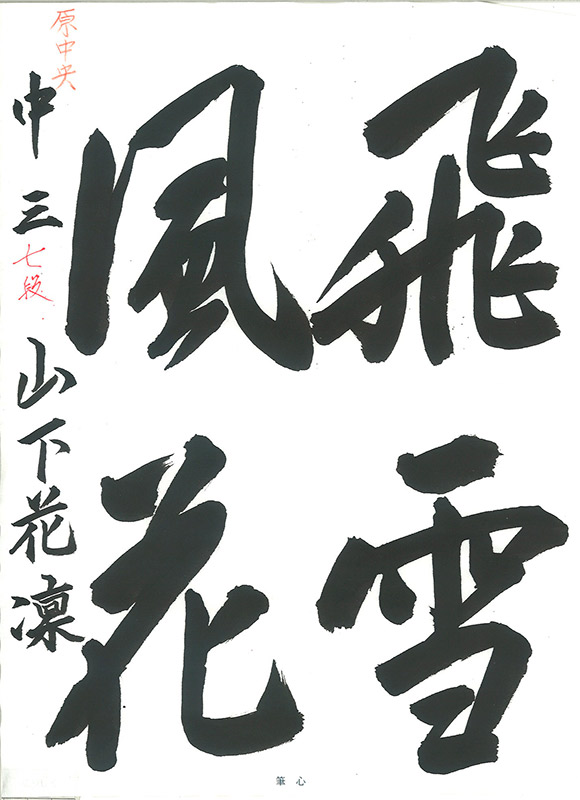 飛雪
風花
原中央
中三
七段
山下花凛
筆心